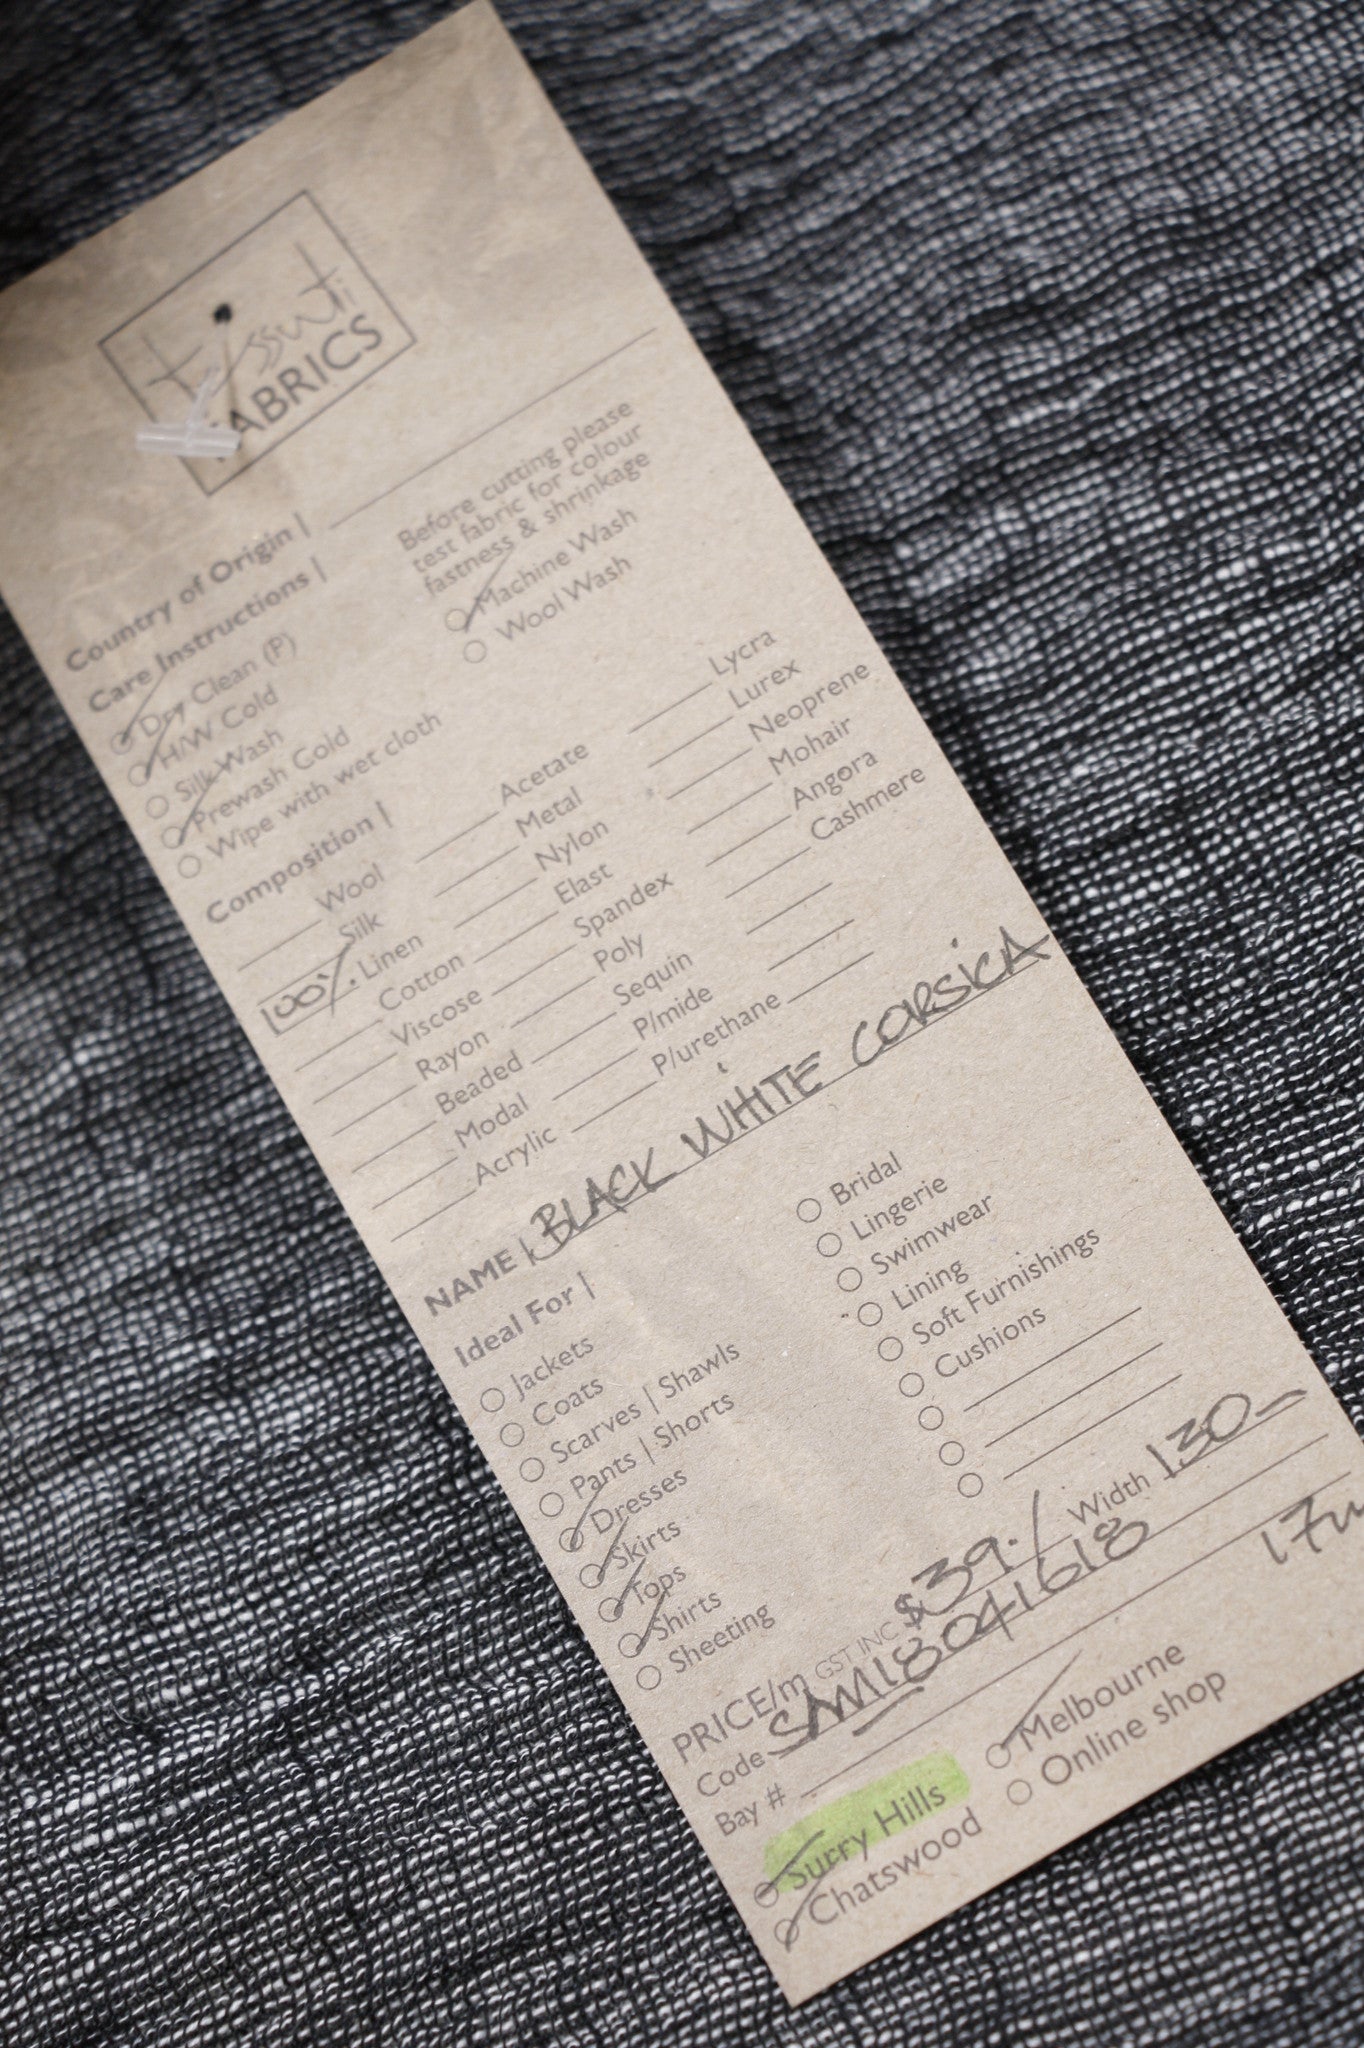 tissuti
FABRICS
Country of Origin |
Care Instructions |
Before cutting please
test fabric for colour
fastness & shrinkage
Dry Clean (P)
H/W Cold
Silk Wash
Prewash Cold
Wipe with wet cloth
Machine Wash
Wool Wash
Composition |
Wool
Silk
100% Linen
Cotton
Viscose
Rayon
Beaded
Modal
Acrylic
Acetate
Metal
Nylon
Elast
Spandex
Poly
Sequin
P/mide
P/urethane
Lycra
Lurex
Neoprene
Mohair
Angora
Cashmere
NAME | BLACK WHITE CORSICA
Ideal For |
Jackets
Coats
Scarves | Shawls
Pants | Shorts
Dresses
Skirts
Tops
Shirts
Sheeting
Bridal
Lingerie
Swimwear
Lining
Soft Furnishings
Cushions
PRICE/m GST INC $39./ Width 130
Code SAM18041618
Bay #
17m
Surry Hills
Chatswood
Melbourne
Online shop